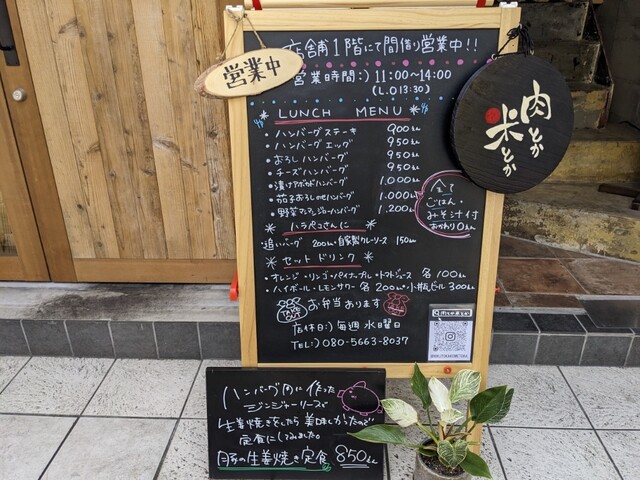 営業中
店舗1階にて間借り営業中!!
営業時間:) 11:00〜14:00
(L.O 13:30)
肉とか米とか
LUNCH MENU
・ハンバーグステーキ 900
・ハンバーグエッグ 950
・おろしハンバーグ 950
・チーズハンバーグ 950
・漬けアボカドハンバーグ 1.000
・茄子おろしのせハンバーグ 1.000
・野菜マシマシハンバーグ 1.200
全て
ごはん・
みそ汁付
おかわり0
ハラペコさんに
追いハンバーグ 200 ・自家製カレーソース 150
セットドリンク
・オレンジ・リンゴ・パイナップル・トマトジュース 各100
・ハイボール・レモンサワー 各200 ・小瓶ビール 300
お弁当あります
TAKE OUT
店休日:) 毎週水曜日
TEL:) 080-5663-8037
ハンバーグ用に作った
ジンジャーソースで
生姜焼きをしたら美味しかったので
定食にしてみました。
豚の生姜焼き定食 850